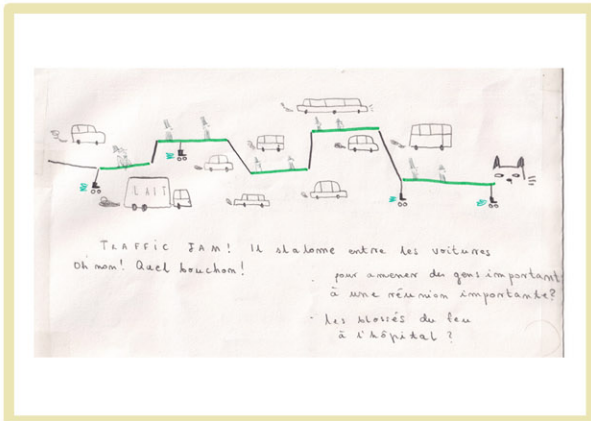 LAIT
TRAFFIC JAM! Il slalome entre les voitures
Oh non! Quel bouchon!
pour amener des gens important
à une réunion importante?
les blessés du feu
à l'hôpital?